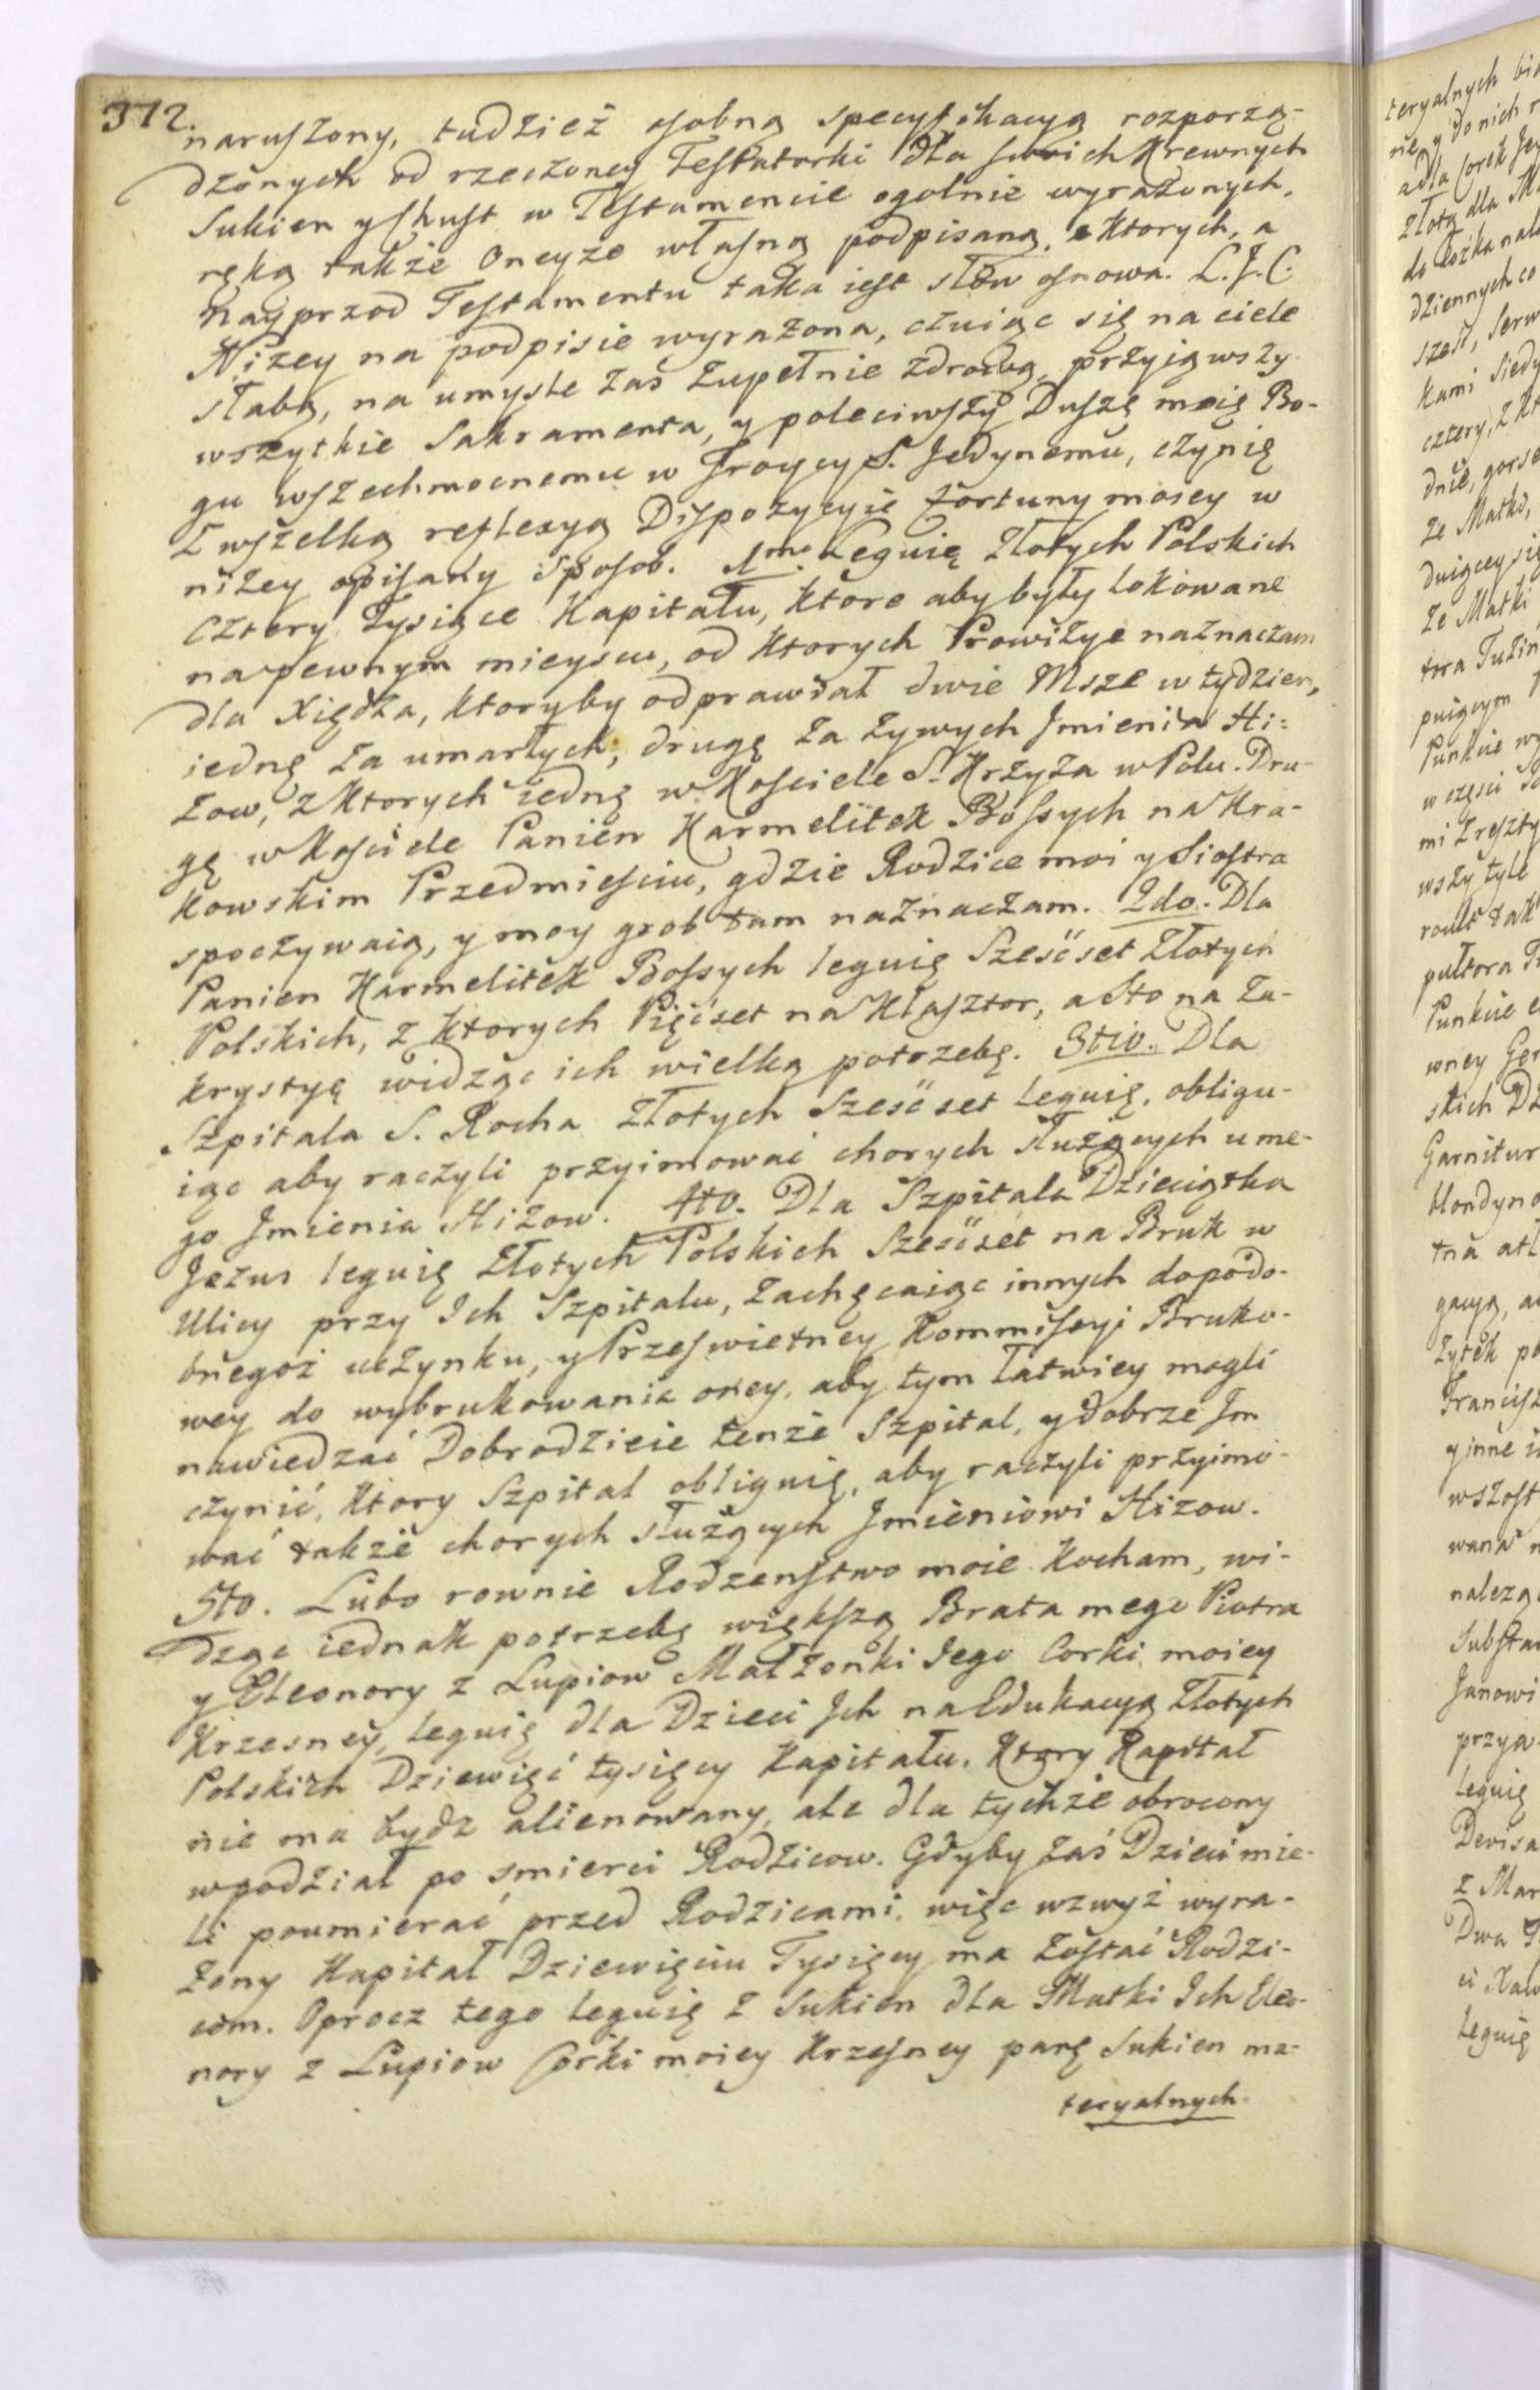 372.
naruszony, tudzież osobną specyfikacyą rozporzą-
dzonych od rzeczoney Testatorki dla swoich Krewnych
Sukien y Chust w Testamencie ogolnie wyrażonych,
ręką także Oneyże własną podpisaną, z ktorych, a
Nayprzod Testamentu taka iest słow osnowa. L.J.C.
Niżey na podpisie wyrażona, czuiąc się na ciele
słabą, na umyśle zaś zupełnie zdrową, przyiąwszy
wszytkie Sakramenta, y poleciwszy Duszę moię Bo-
gu wszechmocnemu w Troycy S. Jedynemu, czynię
z wszelką reflexyą Dispozycyie fortuny moiey w
niżey opisany sposob. 1mo. Leguię Złotych Polskich
Cztery Tysiące Kapitału, ktore aby były lokowane
na pewnym mieyscu, od ktorych Prowizye naznaczam
dla Xiędza, ktoryby odprawiał dwie Msze w tydzien,
iednę za umarłych, drugę za żywych Jmienia Hi-
zow, z ktorych iednę w Kościele S. Krzyża w Polu. Dru-
gę w Kościele Panien Karmelitek Bossych na Kra-
kowskim Przedmieściu, gdzie Rodzice moi y Siostra
spoczywaią, y moy grob tam naznaczam. 2do. Dla
Panien Karmelitek Bossych leguię Sześćset Złotych
Polskich, z ktorych Pięćset na Klasztor, a Sto na Za-
krystyę widząc ich wielką potrzebę. 3tio. Dla
Szpitala S. Rocha Złotych Sześćset leguię, obligu-
iąc aby raczyli przyimować chorych służących u me-
go Jmienia Hizow. 4to. Dla Szpitala Dzieciątka
Jezus leguię Złotych Polskich Sześćset na Bruk w
Ulicy przy Ich Szpitalu, zachęcaiąc innych do podo-
bnegoż uczynku, y Prześwietney Kommissyi Bruko-
wey do wybrukowania oney, aby tym łatwiey mogli
nawiedzać Dobrodzieie tenże Szpital, y dobrze Jm
czynić, ktory Szpital obliguię, aby raczyli przyimo-
wać także chorych służących Jmieniowi Hizow.
5to. Lubo rownie Rodzenstwo moie kocham, wi-
dząc iednak potrzebę większą Brata mego Piotra
y Eleonory z Lupiow Małżonki Jego Corki moiey
Krzesney, leguię dla Dzieci Jch na Edukacyą Złotych
Polskich Dziewięć tysięcy Kapitału. Ktory Kapitał
nie ma bydz alienowany, ale dla tychże obrocony
w podział po smierci Rodzicow. Gdyby zaś Dzieci mie-
li poumierać przed Rodzicami, więc wzwyż wyra-
żony Kapitał Dziewięciu Tysięcy ma zostać Rodzi-
com. Oprocz tego leguię z Sukien dla Matki Ich Eleo-
nory z Lupiow Corki moiey Krzesney parę Sukien ma-
teryalnych.
teryalnych
do nich
Złotą dla
do łożka
dziennych co
sześć,
kami
cztery,
Ze Matki
Punkcie
w części
mi
wszy tyle
Punkcie
Garnitur
y inne
Janowi
leguię
z Mar
Dwa
leguię